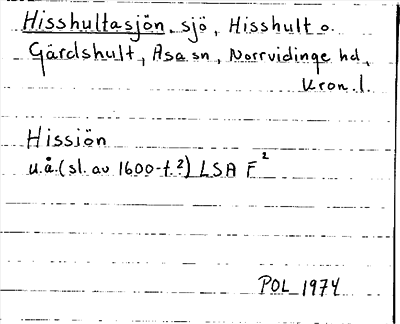 Hisshultasjön, sjö, Hisshult o.
Gårdshult, Asa sn, Norrvidinge hd,
Kron. l.
Hissiön
u.å. (sl. av 1600-t.?) LSA F²
POL 1974